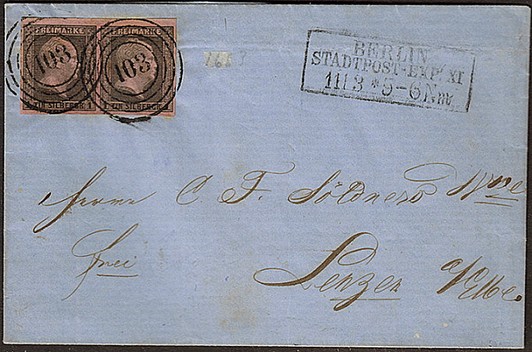 FREIMARKE FREIMARKE
103 103
1 EIN SILBERGR. 1 1 EIN SILBERGR. 1
BERLIN
STADTPOST-EXP. XI
11 3 * 5-6 Nm
Herrn C F. Söldners Wwe
frei
Lenzen a/Elbe.